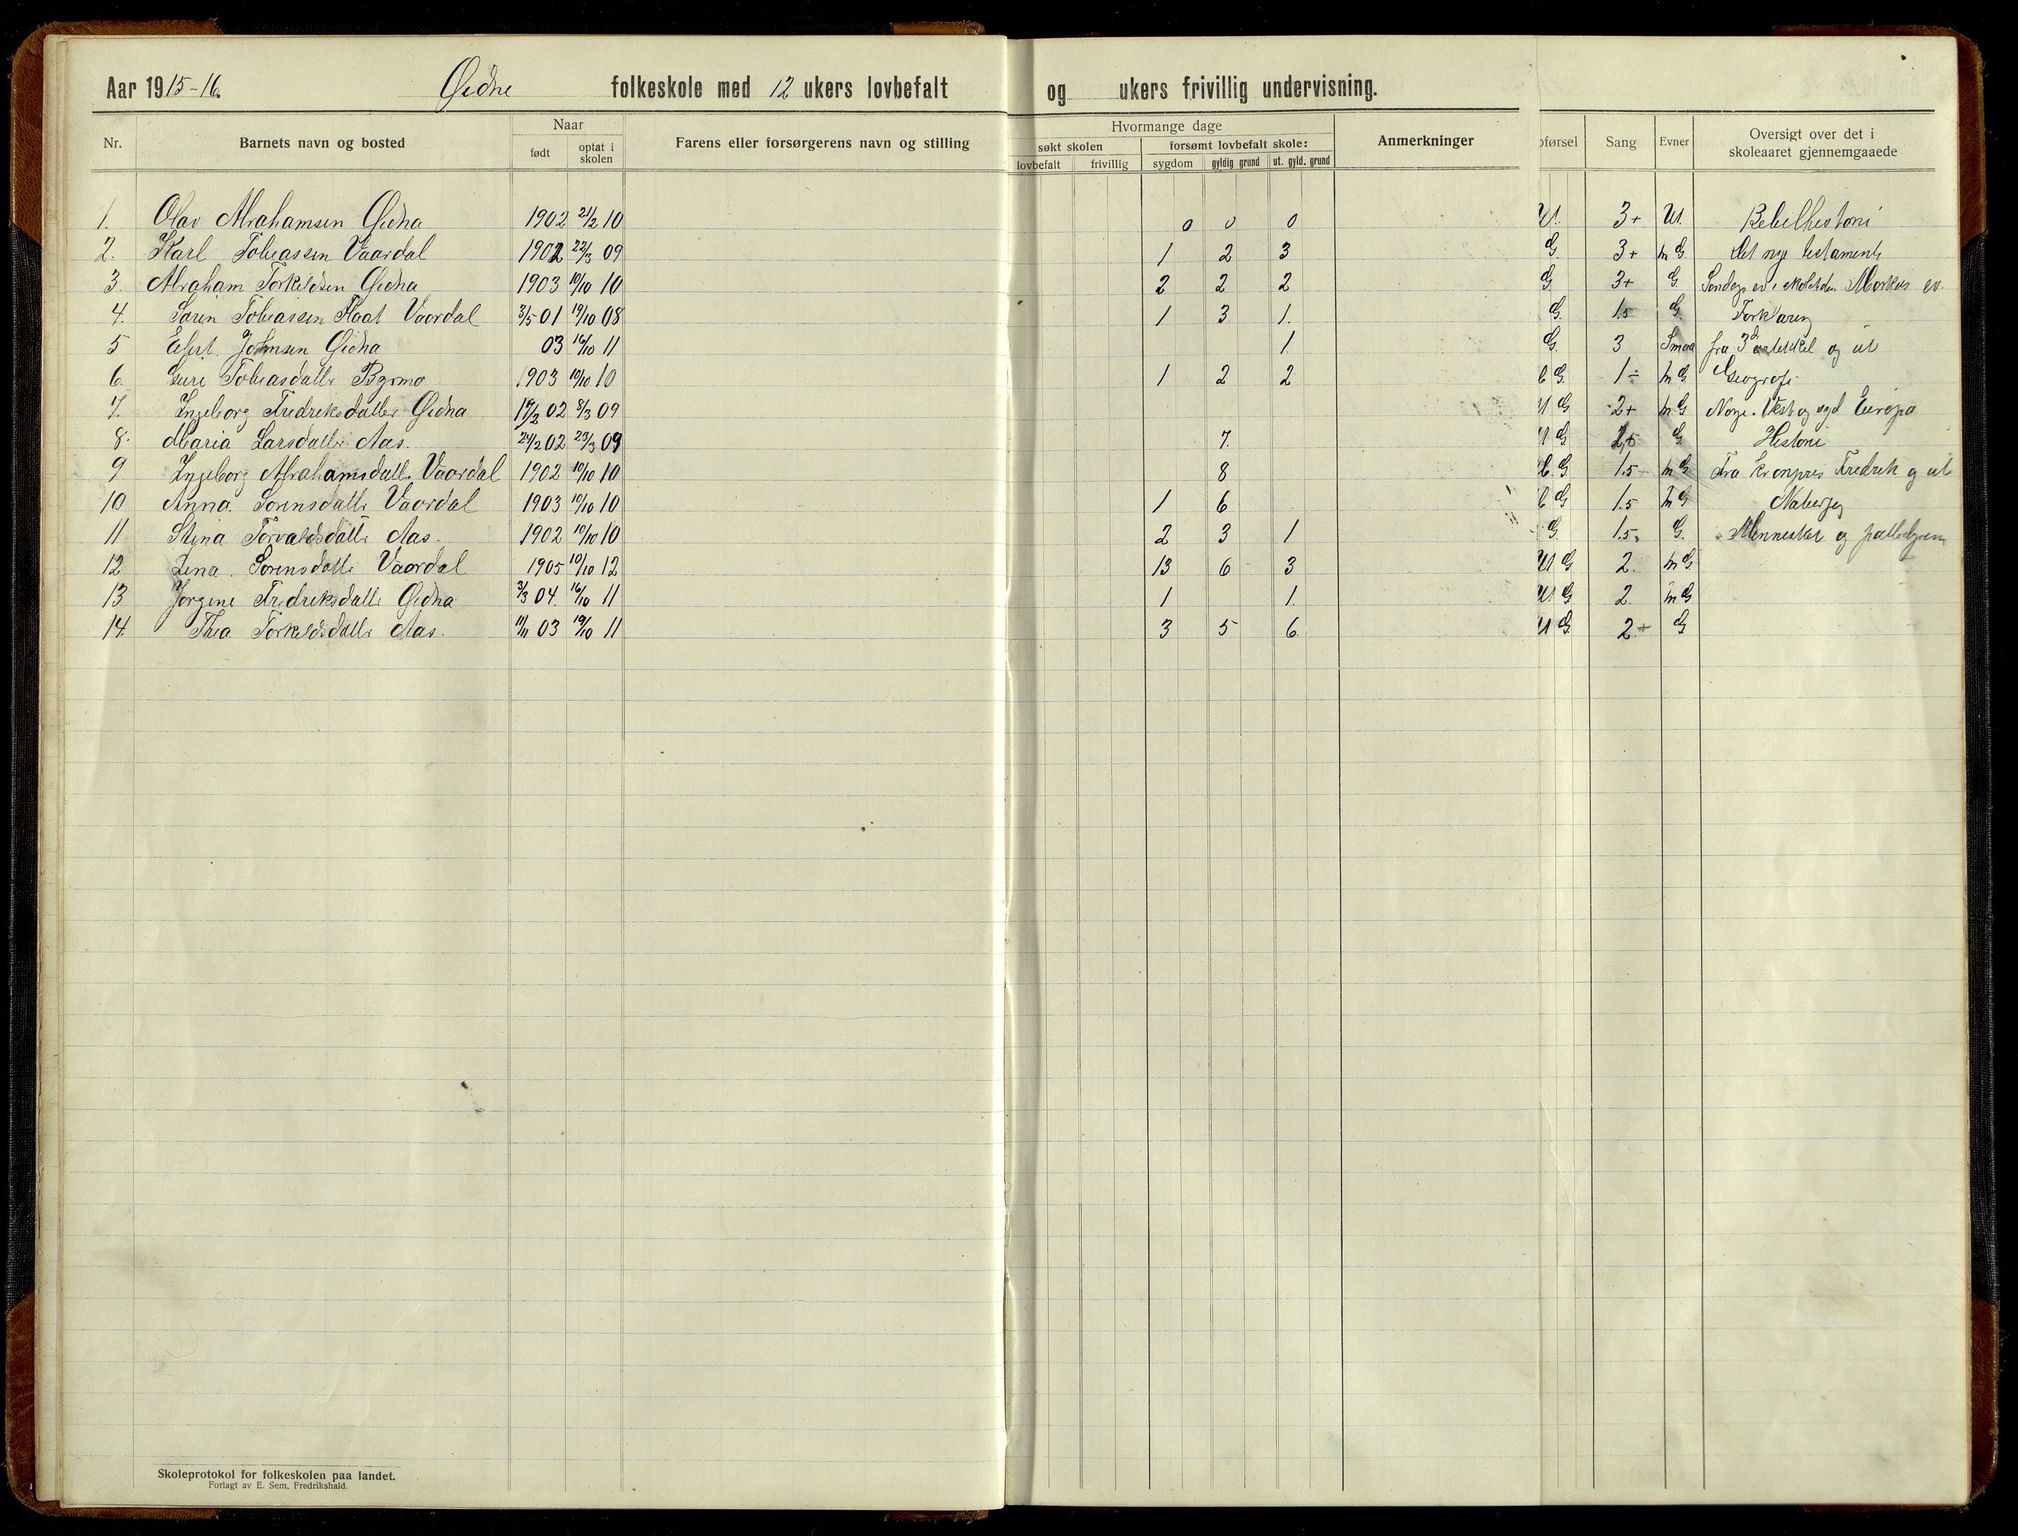 Aar 1915-16. Øidne folkeskole med 12 ukers lovbefalt og ukers frivillig undervisning.
Nr. Barnets navn og bosted Naar født optat i skolen Farens eller forsørgerens navn og stilling Hvormange dage søkt skolen lovbefalt frivillig forsømt lovbefalt skole: sygdom gyldig grund ut. gyld. grund Anmerkninger pførsel Sang Evner Oversigt over det i skoleaaret gjennemgaaede
1. Olav Abrahamsen Øidna 1902 21/2 10 0 0 0 U. 3+ U. Bibelhistorie
2. Karl Tobiassen Vaardal 1902 22/3 09 1 2 3 G. 3+ m G. Det nye testamente
3 Abraham Torkeldsen Øidna 1903 10/10 10 2 2 2 G. 3+ G. Markus ev
4. Søren Tobiassen Vaardal 3/5 01 19/10 08 1 3 1. G. 1.5 G. Forklaring
5 Johnsen Øidna 03 16/10 11 1. G. 3 Smaa fra 3d artikkel og ut
6. Guri Tobiasdattr Byrmo 1903 10/10 10 1 2 2 G. 1÷ m G. Geografi
7. Ingeborg Fredriksdattr Øidna 17/2 02 8/3 09 U G 2+ m G Norge. Vest og syd Europa
8. Maria Larsdattr Aas. 24/2 02 23/3 09 7. U G G Historie
9 Ingeborg Abrahamsdattr Vaardal 1902 10/10 10 8 G. 1.5 m G Fra Kronprins Fredrik og ut
10 Anna Sørensdattr Vaardal 1903 10/10 10 1 6 G 1.5 m G
11 Stina Torvaldsdattr Aas. 1902 10/10 10 2 3 1 G. 1.5. G. Mennesket og
12 Lina Sørensdattr Vaardal 1905 10/10 12 13 6 3 U G 2. m G.
13 Jørgine Fredriksdattr Øidna 3/3 04. 16/10 11 1 1. U G 2. m G
14. Thea Torkeldsdattr Aas. 11/11 03 19/10 11 3 5 6. U G. 2+ G
Skoleprotokol for folkeskolen paa landet.
Forlagt av E. Sem, Fredrikshald.